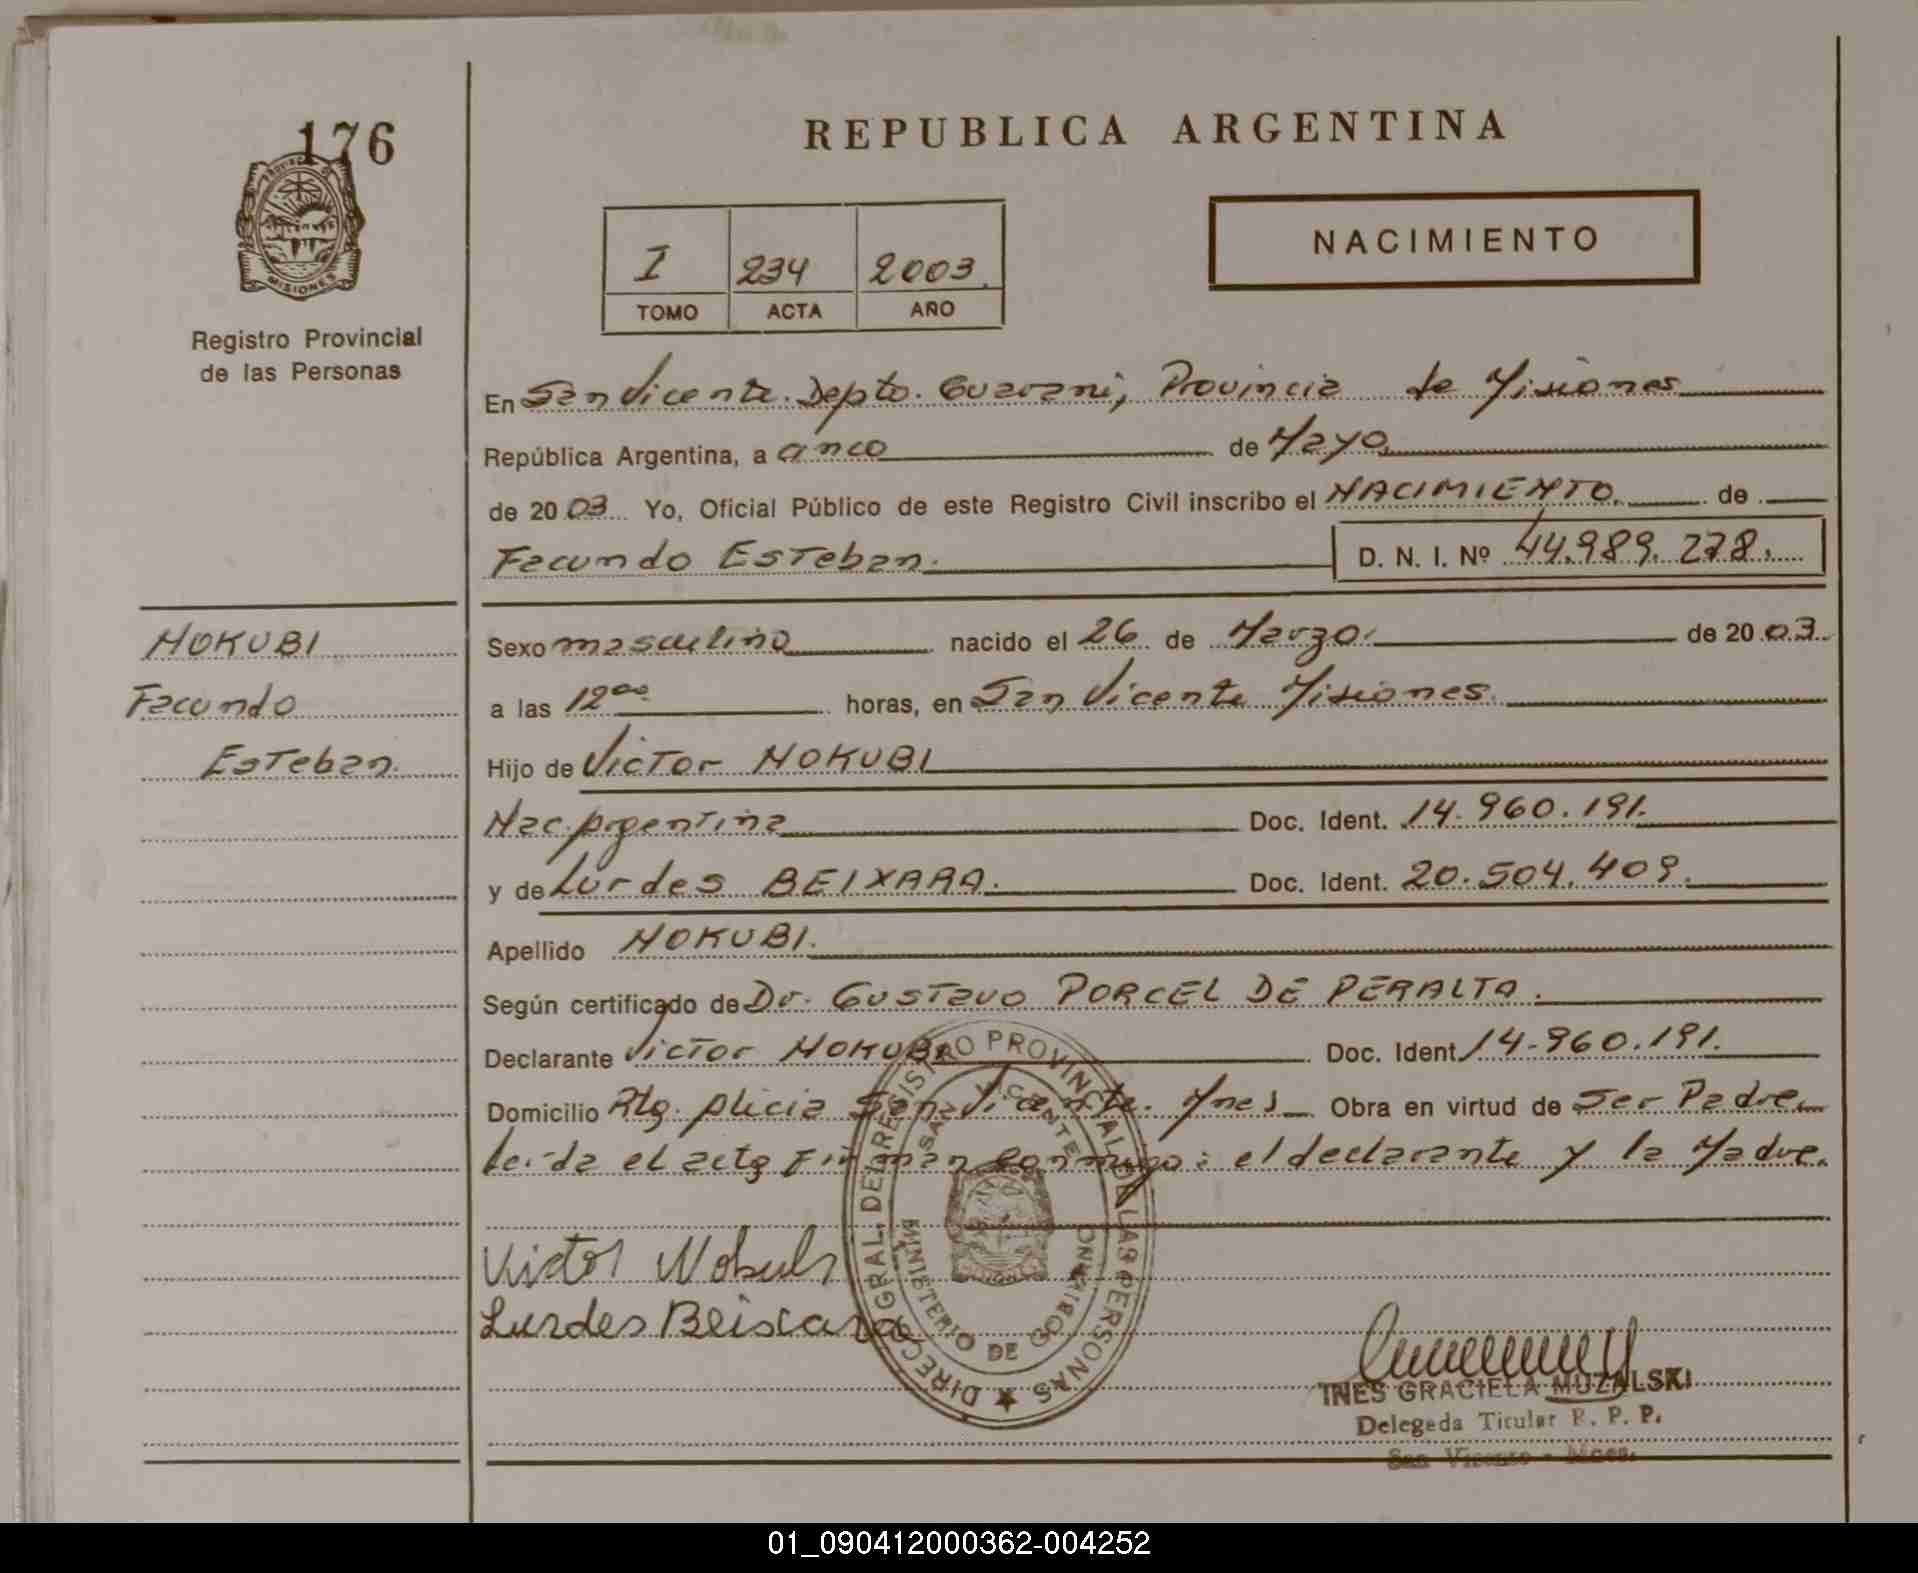 176
PROVINCIA DE
MISIONES
Registro Provincial
de las Personas
REPUBLICA ARGENTINA
NACIMIENTO
I 234 2003
TOMO ACTA AÑO
En San Vicente. Depto. Guaraní, Provincia de Misiones
República Argentina, a cinco de Mayo
de 2003 Yo, Oficial Público de este Registro Civil inscribo el NACIMIENTO de
Facundo Esteban. D. N. I. Nº 44.989.278.
NOKUBI
Facundo
Esteban.
Sexo masculino nacido el 26 de Marzo. de 2003
a las 12⁰⁰ horas, en San Vicente Misiones.
Hijo de Victor NOKUBI
Nac. Argentina Doc. Ident. 14.960.191.
y de Lurdes BEIXARA. Doc. Ident. 20.504.409.
Apellido NOKUBI.
Según certificado de Dr. Gustavo PORCEL DE PERALTA.
Declarante Victor NOKUBI Doc. Ident 14-960.191.
Domicilio Alicia San Vicente. Mnes Obra en virtud de Ser Padre
Leída el acta Firman conmigo: el declarante y la Madre.
Victor Nokubi
Lurdes Beixara
DIREC. GRAL. DEL REGISTRO PROVINCIAL DE LAS PERSONAS
SAN VICENTE
MINISTERIO DE GOBIERNO
INES GRACIELA MUZALSKI
Delegada Titular R. P. P.
San Vicente - Mnes.
01_090412000362-004252